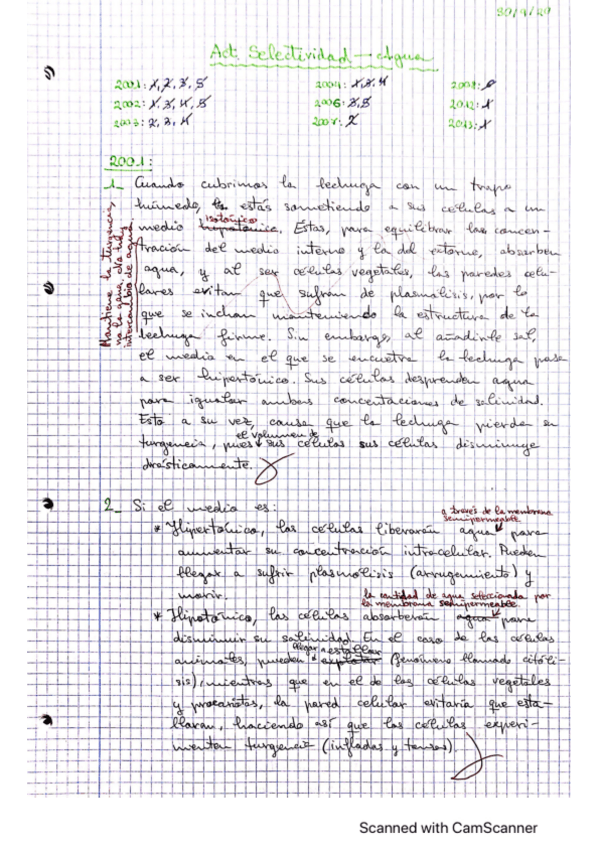 30/9/20
Act. Selectividad → Agua
2001: 1, 2, 3, 5
2002: 1, 3, 4, 5
2003: 2, 3, 4
2004: 1, 3, 4
2006: 3, 5
2012: 1
2013: 1
2001:
1_ Cuando cubrimos la lechuga con un trapo
húmedo, la estás sometiendo a sus células a un
medio hipotónico. Éstas, para equilibrar las concen-
isotónico
tración del medio interno y la del externo, absorben
agua, y al ser células vegetales, las paredes celu-
lares evitan que sufran de plasmólisis, por lo
que se inchan manteniendo la estructura de la
lechuga firme. Sin embargo, al añadirle sal,
el medio en el que se encuetra la lechuga pasa
a ser hipertónico. Sus células desprenden agua
para igualar ambas concentraciones de salinidad.
Esto a su vez, causa que la lechuga pierda su
turgencia, pues sus células sus células disminuye
el volumen de
drásticamente.
Mantiene la turgencia,
no la gana, día hay
intercambio de agua
2_ Si el medio es:
* Hipertónico, las células liberarán agua para
a través de la membrana
semipermeable
aumentar su concentración intracelular. Pueden
llegar a sufrir plasmólisis (arrugamiento) y
morir.
la cantidad de agua seleccionada por
la membrana semipermeable.
* Hipotónico, las células absorberán agua para
disminuir su salinidad. En el caso de las células
animales, pueden explotar (fenómeno llamado citóli-
llegar a estallar
sis), mientras que en el de las células vegetales
y procariotas, la pared celular evitaría que esta-
llaran, haciendo así que las células experi-
mentan turgencia (infladas y tensas).
Scanned with CamScanner